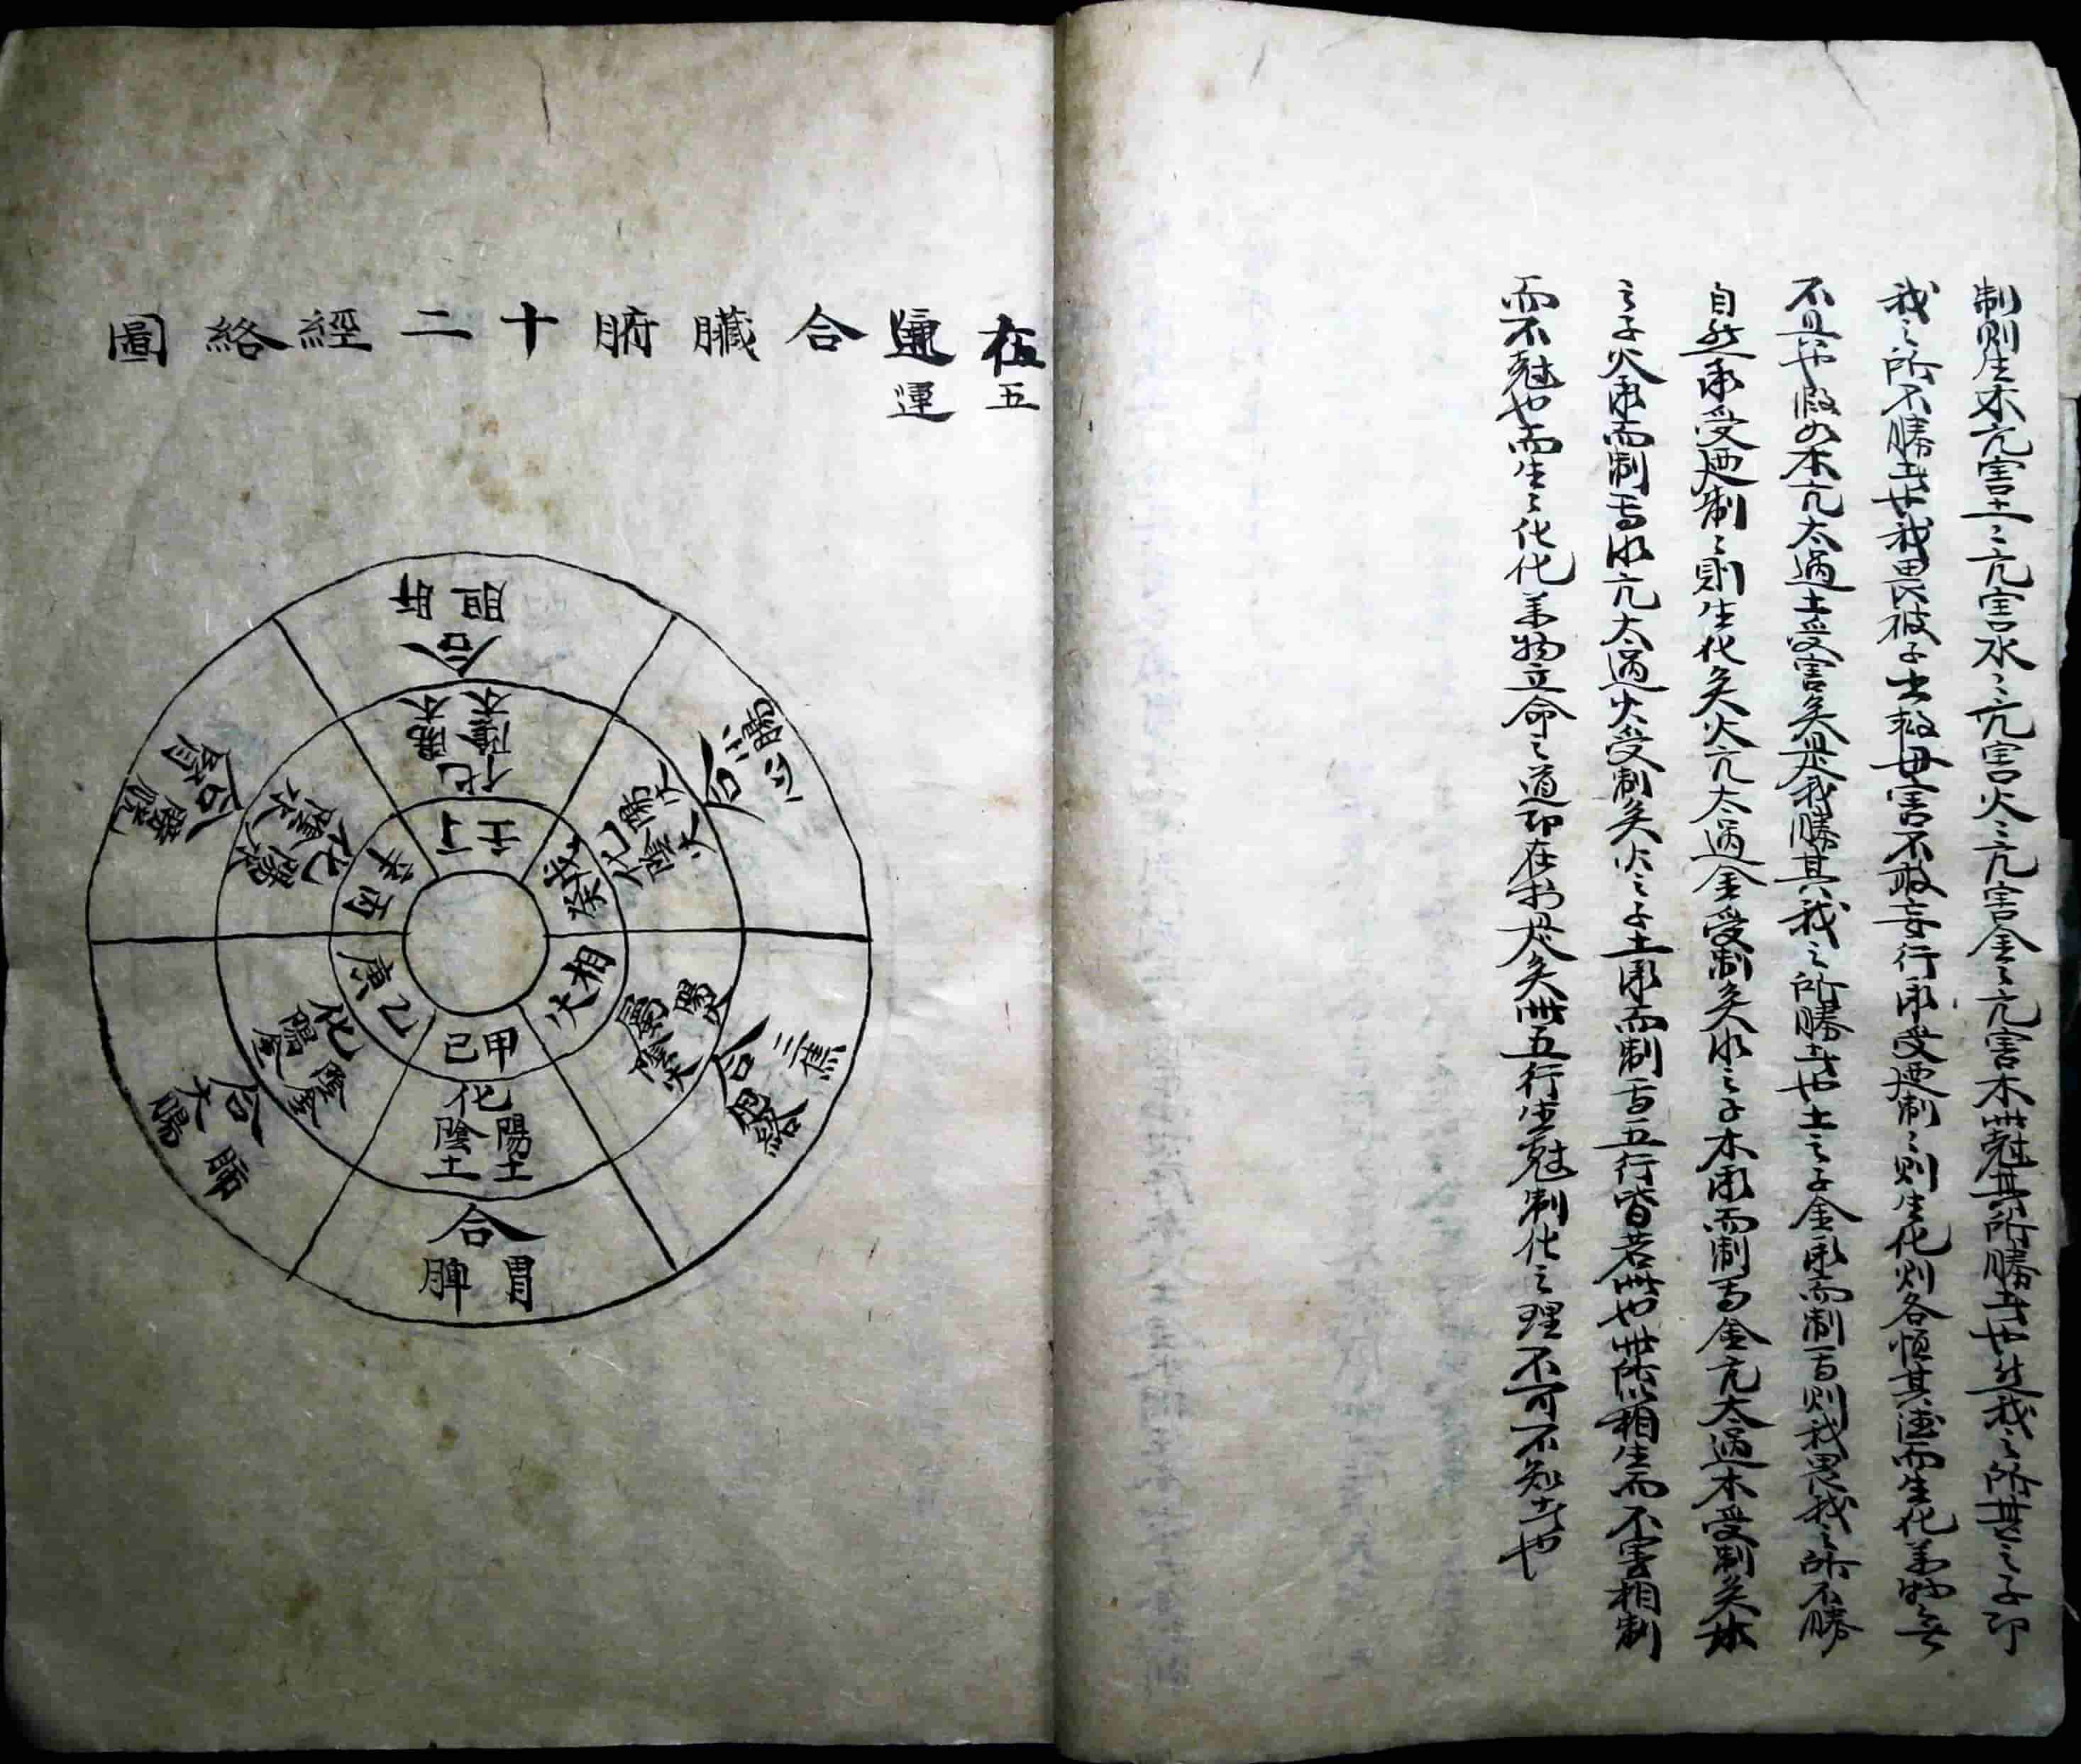 制則生木亢害土〻亢害水〻亢害火〻亢害金〻亢害木此尅其所勝者也生我之所其之子即
我之所不勝者也我畏彼子出救母害不敢妄行承受廹制〻則生化則各恒其德而生化萬物無
不具也假如木亢太過土受害矣是我勝其我之所勝者也土之子金承而制焉則我畏我之所不勝
自然承受廹制〻則生化矣火亢太過金受制矣水之子木承而制焉金亢太過木受制矣木
之子火承而制焉水亢太過火受制矣火之子土承而制焉五行皆若此也此所以相生而不害相制
而不尅也而生〻化化萬物立命之道即在於是矣此五行生尅制化之理不可不知者也
五運合臟腑十二經絡圖
五
運
膽肝
合
陰木陽木
化
壬丁
小腸心
合
陽火陰火
化
戊癸
三焦包絡
合
陽火陰火
相火
胃脾
合
陽土陰土
化
甲己
大腸肺
合
陽金陰金
化
乙庚
膀胱腎
合
陽水陰水
化
丙辛